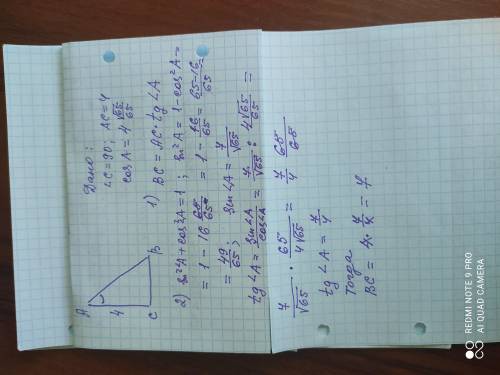 Дано:
∠C=90; AC=4
cos A = 4√65/65
A
4
C
B
1) BC = AC · tg ∠A
2) sin²A + cos²A = 1; sin²A = 1 - cos²A =
= 1 - 16 65/65² = 1 - 16/65 = 65-16/65 =
= 49/65; sin ∠A = 7/√65
tg ∠A = sin ∠A/cos ∠A = 7/√65 : 4√65/65 =
7/√65 · 65/4√65 = 7/4 65/65
tg ∠A = 7/4
Тогда
BC = 4 · 7/4 = 7
REDMI NOTE 9 PRO
AI QUAD CAMERA